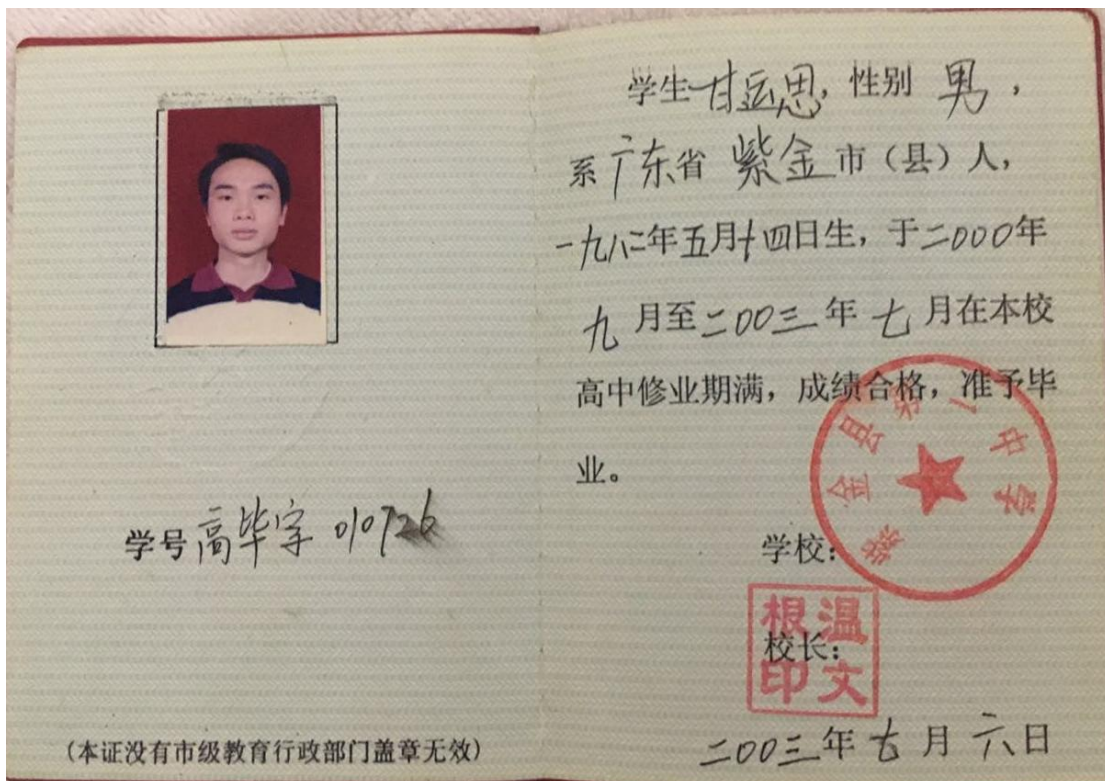 学号高毕字 010726
(本证没有市级教育行政部门盖章无效)
学生甘运思,性别 男,
系广东省 紫金市(县)人,
一九八二年五月十四日生,于二000年
九 月至二00三年 七 月在本校
高中修业期满,成绩合格,准予毕
业。
紫金县第二中学
学校:
温文根印
校长:
二00三年七月六日